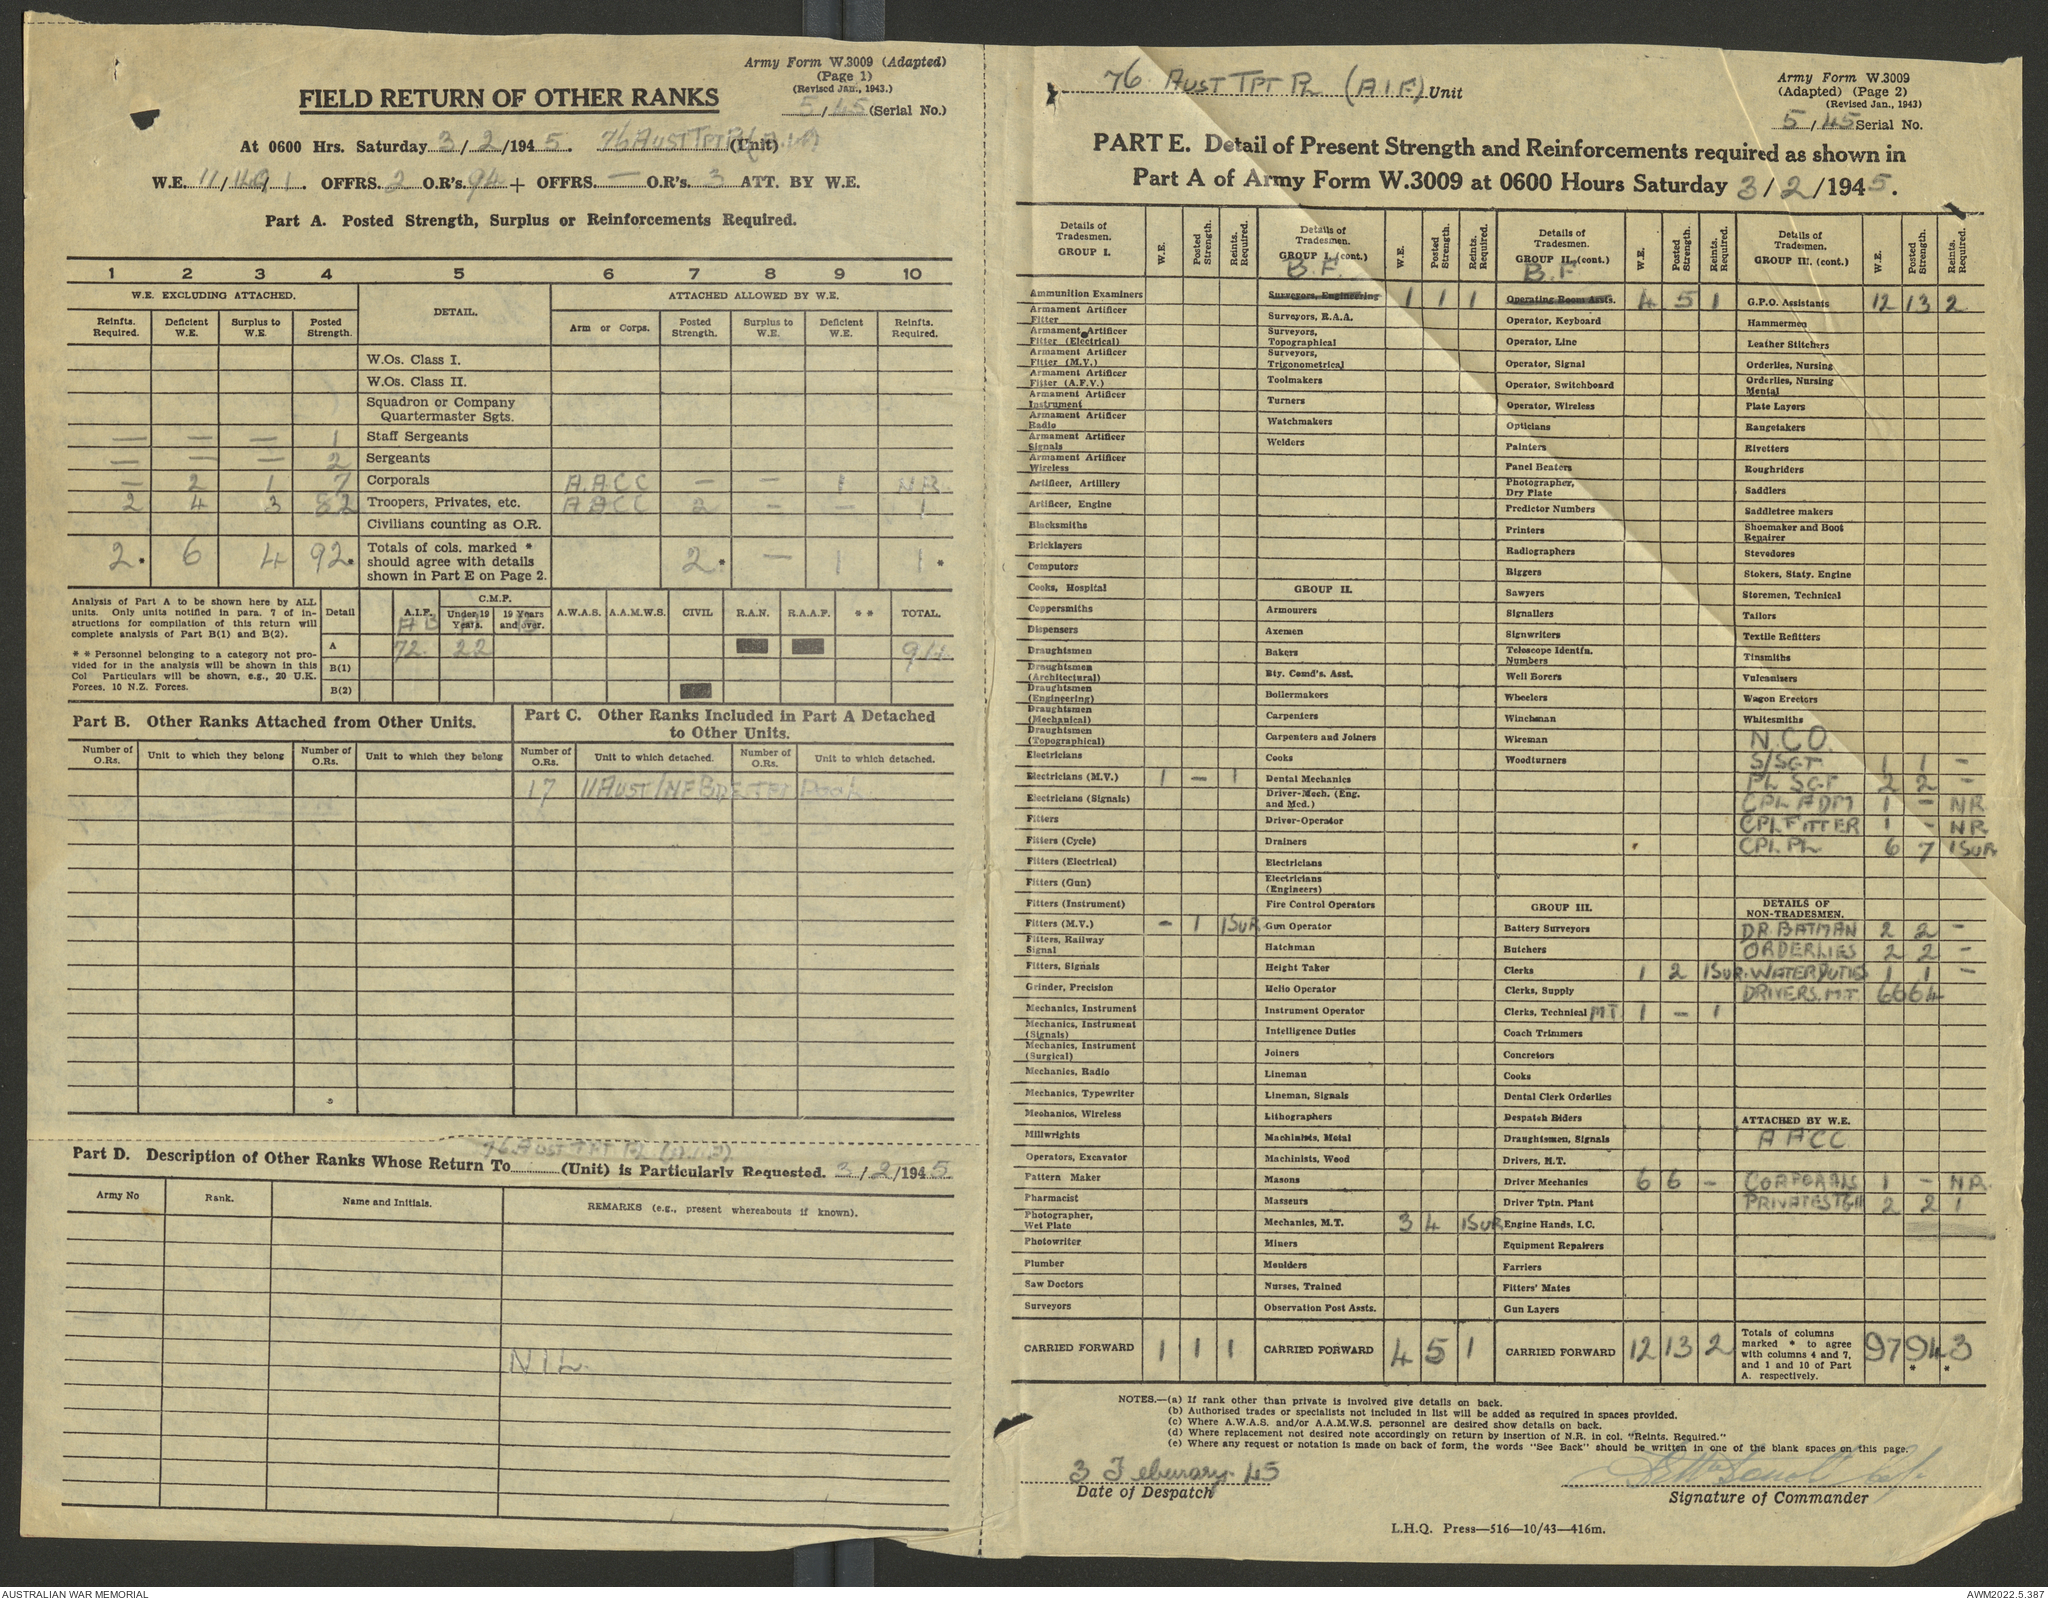 Army Form W.3009 (Adapted)
(Page 1)
(Revised Jan., 1943.)
FIELD RETURN OF OTHER RANKS
5/45 (Serial No.)
At 0600 Hrs. Saturday 3/2/1945. 76 AUST TPT PL (A.I.F) (Unit)
W.E. 11/ / 1. OFFRS. 2 O.R's. 94 + OFFRS. — O.R's. 3 ATT. BY W.E.
Part A. Posted Strength, Surplus or Reinforcements Required.
1 2 3 4 5 6 7 8 9 10
W.E. EXCLUDING ATTACHED. DETAIL. ATTACHED ALLOWED BY W.E.
Reinfts. Required. Deficient W.E. Surplus to W.E. Posted Strength. Arm or Corps. Posted Strength. Surplus to W.E. Deficient W.E. Reinfts. Required.
W.Os. Class I.
W.Os. Class II.
Squadron or Company
Quartermaster Sgts.
— — — 1 Staff Sergeants
— — — 2 Sergeants
— 2 1 7 Corporals A.A.C.C — — 1 N.R.
2 4 3 82 Troopers, Privates, etc. AACC 2 — — 1
Civilians counting as O.R.
2* 6 4 92* Totals of cols. marked * should agree with details shown in Part E on Page 2. 2* — 1 1*
Analysis of Part A to be shown here by ALL
units. Only units notified in para. 7 of in-
structions for compilation of this return will
complete analysis of Part B(1) and B(2).
* * Personnel belonging to a category not pro-
vided for in the analysis will be shown in this
Col Particulars will be shown, e.g., 20 U.K.
Forces, 10 N.Z. Forces.
Detail A.I.F. C.M.P. Under 19 Years. 19 Years and over. A.W.A.S. A.A.M.W.S. CIVIL R.A.N. R.A.A.F. * * TOTAL
A 72 22 94
B(1)
B(2)
Part B. Other Ranks Attached from Other Units.
Part C. Other Ranks Included in Part A Detached
to Other Units.
Number of O.Rs. Unit to which they belong Number of O.Rs. Unit to which they belong Number of O.Rs. Unit to which detached. Number of O.Rs. Unit to which detached.
17 11 AUST INF BDE TPT POOL
76 AUST TPT PL (A.I.F)
Part D. Description of Other Ranks Whose Return To (Unit) is Particularly Requested. 3/2/1945.
Army No Rank. Name and Initials. REMARKS (e.g., present whereabouts if known).
NIL.
76 AUST TPT PL (A.I.F) Unit
Army Form W.3009
(Adapted) (Page 2)
(Revised Jan., 1943)
5/45 Serial No.
PART E. Detail of Present Strength and Reinforcements required as shown in
Part A of Army Form W.3009 at 0600 Hours Saturday 3/2/1945.
Details of Tradesmen. GROUP I. W.E. Posted Strength. Reints. Required.
Ammunition Examiners
Armament Artificer Fitter
Armament Artificer Fitter (Electrical)
Armament Artificer Fitter (M.V.)
Armament Artificer Fitter (A.F.V.)
Armament Artificer Instrument
Armament Artificer Radio
Armament Artificer Signals
Armament Artificer Wireless
Artificer, Artillery
Artificer, Engine
Blacksmiths
Bricklayers
Computors
Cooks, Hospital
Coppersmiths
Dispensers
Draughtsmen
Draughtsmen (Architectural)
Draughtsmen (Engineering)
Draughtsmen (Mechanical)
Draughtsmen (Topographical)
Electricians
Electricians (M.V.) 1 — 1
Electricians (Signals)
Fitters
Fitters (Cycle)
Fitters (Electrical)
Fitters (Gun)
Fitters (Instrument)
Fitters (M.V.) — 1 1SUR
Fitters, Railway Signal
Fitters, Signals
Grinder, Precision
Mechanics, Instrument
Mechanics, Instrument (Signals)
Mechanics, Instrument (Surgical)
Mechanics, Radio
Mechanics, Typewriter
Mechanics, Wireless
Millwrights
Operators, Excavator
Pattern Maker
Pharmacist
Photographer, Wet Plate
Photowriter
Plumber
Saw Doctors
Surveyors
CARRIED FORWARD 1 1 1
Details of Tradesmen. GROUP I. (cont.) W.E. Posted Strength. Reints. Required.
B.F.
Surveyors, Engineering 1 1 1
Surveyors, R.A.A.
Surveyors, Topographical
Surveyors, Trigonometrical
Toolmakers
Turners
Watchmakers
Welders
GROUP II.
Armourers
Axemen
Bakers
Bty. Comd's. Asst.
Boilermakers
Carpenters
Carpenters and Joiners
Cooks
Dental Mechanics
Driver-Mech. (Eng. and Med.)
Driver-Operator
Drainers
Electricians
Electricians (Engineers)
Fire Control Operators
Gun Operator
Hatchman
Height Taker
Helio Operator
Instrument Operator
Intelligence Duties
Joiners
Lineman
Lineman, Signals
Lithographers
Machinists, Metal
Machinists, Wood
Masons
Masseurs
Mechanics, M.T. 3 4 1SUR
Miners
Moulders
Nurses, Trained
Observation Post Assts.
CARRIED FORWARD 4 5 1
Details of Tradesmen. GROUP II. (cont.) W.E. Posted Strength. Reints. Required.
B.F
Operating Room Assts. 4 5 1
Operator, Keyboard
Operator, Line
Operator, Signal
Operator, Switchboard
Operator, Wireless
Opticians
Painters
Panel Beaters
Photographer, Dry Plate
Predictor Numbers
Printers
Radiographers
Riggers
Sawyers
Signallers
Signwriters
Telescope Identfn. Numbers
Well Borers
Wheelers
Winchman
Wireman
Woodturners
GROUP III.
Battery Surveyors
Butchers
Clerks 1 2 1SUR.
Clerks, Supply
Clerks, Technical MT 1 — 1
Coach Trimmers
Concretors
Cooks
Dental Clerk Orderlies
Despatch Riders
Draughtsmen, Signals
Drivers, M.T.
Driver Mechanics 6 6 —
Driver Tptn. Plant
Engine Hands, I.C.
Equipment Repairers
Farriers
Fitters' Mates
Gun Layers
CARRIED FORWARD 12 13 2
Details of Tradesmen. GROUP III. (cont.) W.E. Posted Strength. Reints. Required.
G.P.O. Assistants 12 13 2
Hammermen
Leather Stitchers
Orderlies, Nursing
Orderlies, Nursing Mental
Plate Layers
Rangetakers
Rivetters
Roughriders
Saddlers
Saddletree makers
Shoemaker and Boot Repairer
Stevedores
Stokers, Staty. Engine
Storemen, Technical
Tailors
Textile Refitters
Tinsmiths
Vulcanizers
Wagon Erectors
Whitesmiths
N.C.O.
S/SGT 1 1 —
PL SGT 2 2 —
CPL ADM 1 — NR
CPL FITTER 1 — NR
CPL PL 6 7 1SUR
DETAILS OF NON-TRADESMEN.
DR. BATMAN 2 2 —
ORDERLIES 2 2 —
WATER DUTIES 1 1 —
DRIVERS. M.T. 66 64
ATTACHED BY W.E.
AACC
CORPORALS 1 — N.R.
PRIVATES 2 2 1
Totals of columns marked * to agree with columns 4 and 7, and 1 and 10 of Part A. respectively. 97 94* 3*
NOTES.—(a) If rank other than private is involved give details on back.
(b) Authorised trades or specialists not included in list will be added as required in spaces provided.
(c) Where A.W.A.S. and/or A.A.M.W.S. personnel are desired show details on back.
(d) Where replacement not desired note accordingly on return by insertion of N.R. in col. "Reints. Required."
(e) Where any request or notation is made on back of form, the words "See Back" should be written in one of the blank spaces on this page.
3 February 45
Date of Despatch
Signature of Commander
L.H.Q. Press—516—10/43—416m.
AUSTRALIAN WAR MEMORIAL
AWM2022.5.387